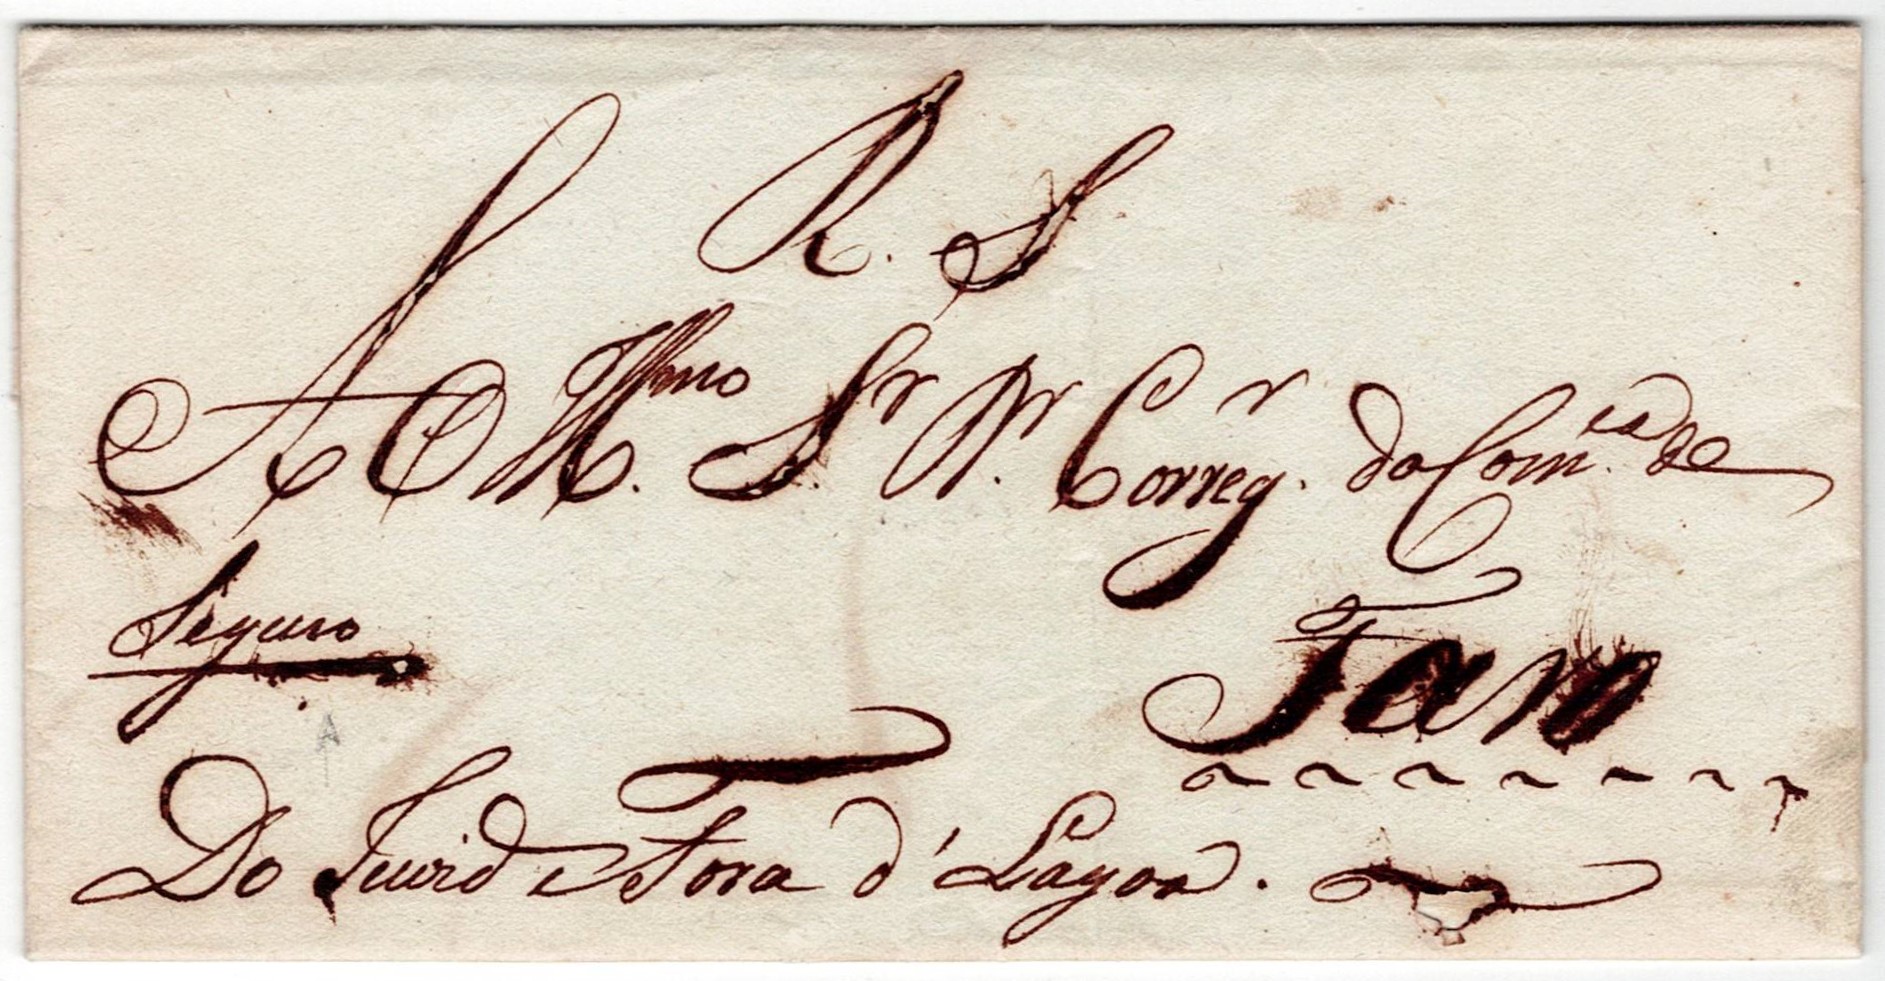 R. S
Ao Illmo. Sr. Dr. Correg.r da Com.ca de
Seguro
Faro
A
Do Juiz de Fora d'Lagoa.